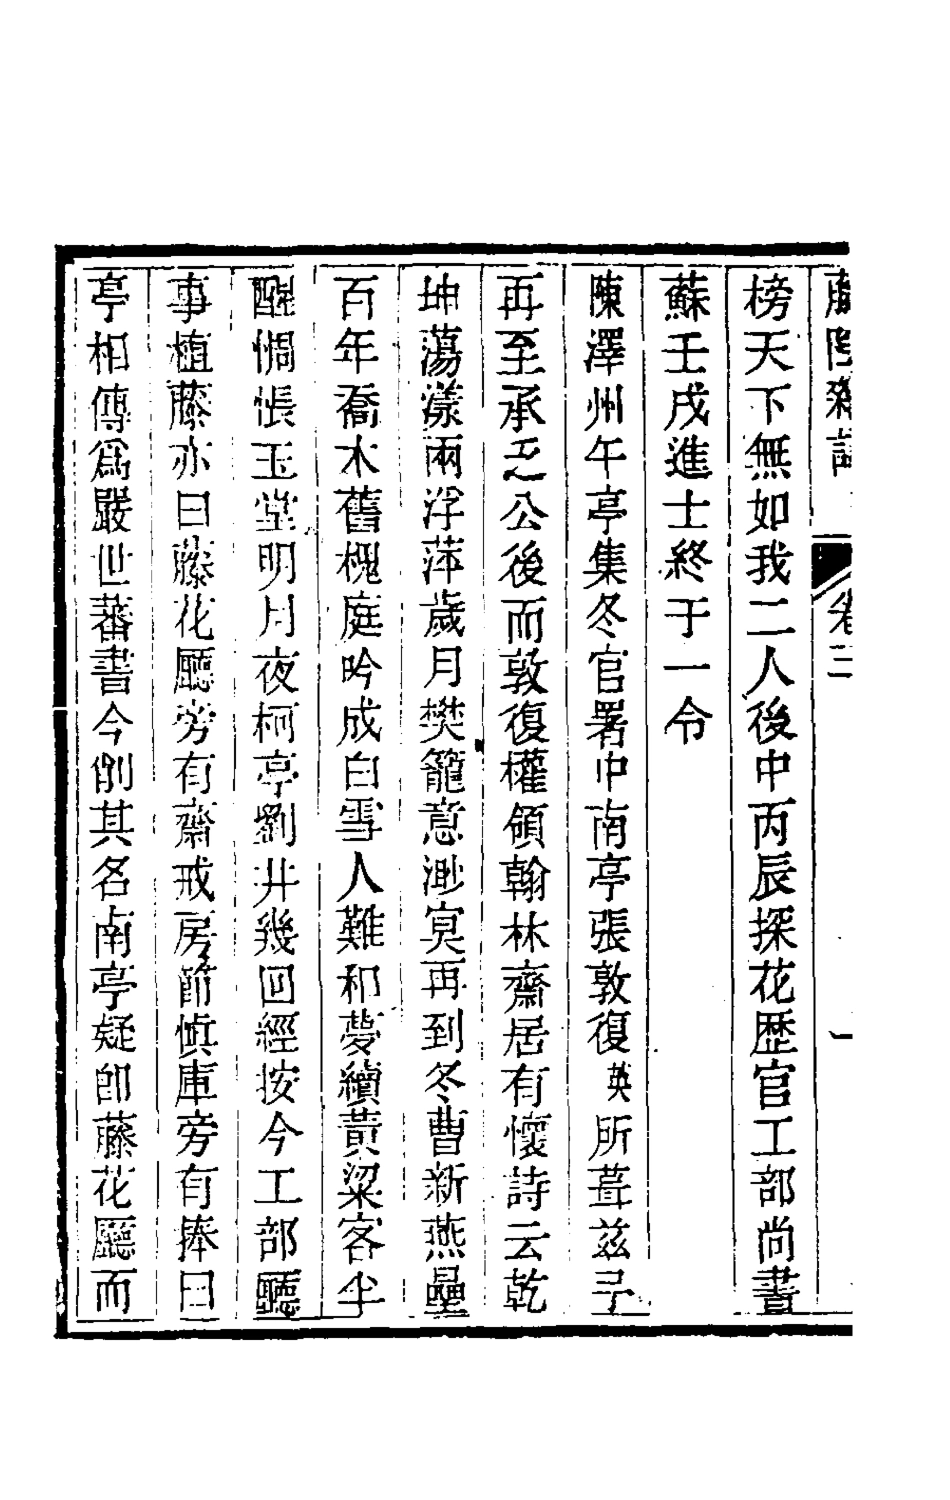 藤陰雜記
卷
榜天下無如我二人後中丙辰探花歷官工部尚書
蘇壬戌進士終于一令
陳澤州午亭集冬官署中南亭張敦復英所葺兹予
再至承乏公後而敦復權領翰林齋居有懷詩云乾
坤蕩漾兩浮萍歲月樊籠意渺冥再到冬曹新燕壘
百年喬木舊槐庭吟成白雪人難和夢續黃粱客半
醒惆悵玉堂明月夜柯亭劉井幾回經按今工部廳
事植藤亦曰藤花廳旁有齋戒房節慎庫旁有捧日
亭相傳爲嚴世蕃書今削其名南亭疑卽藤花廳而